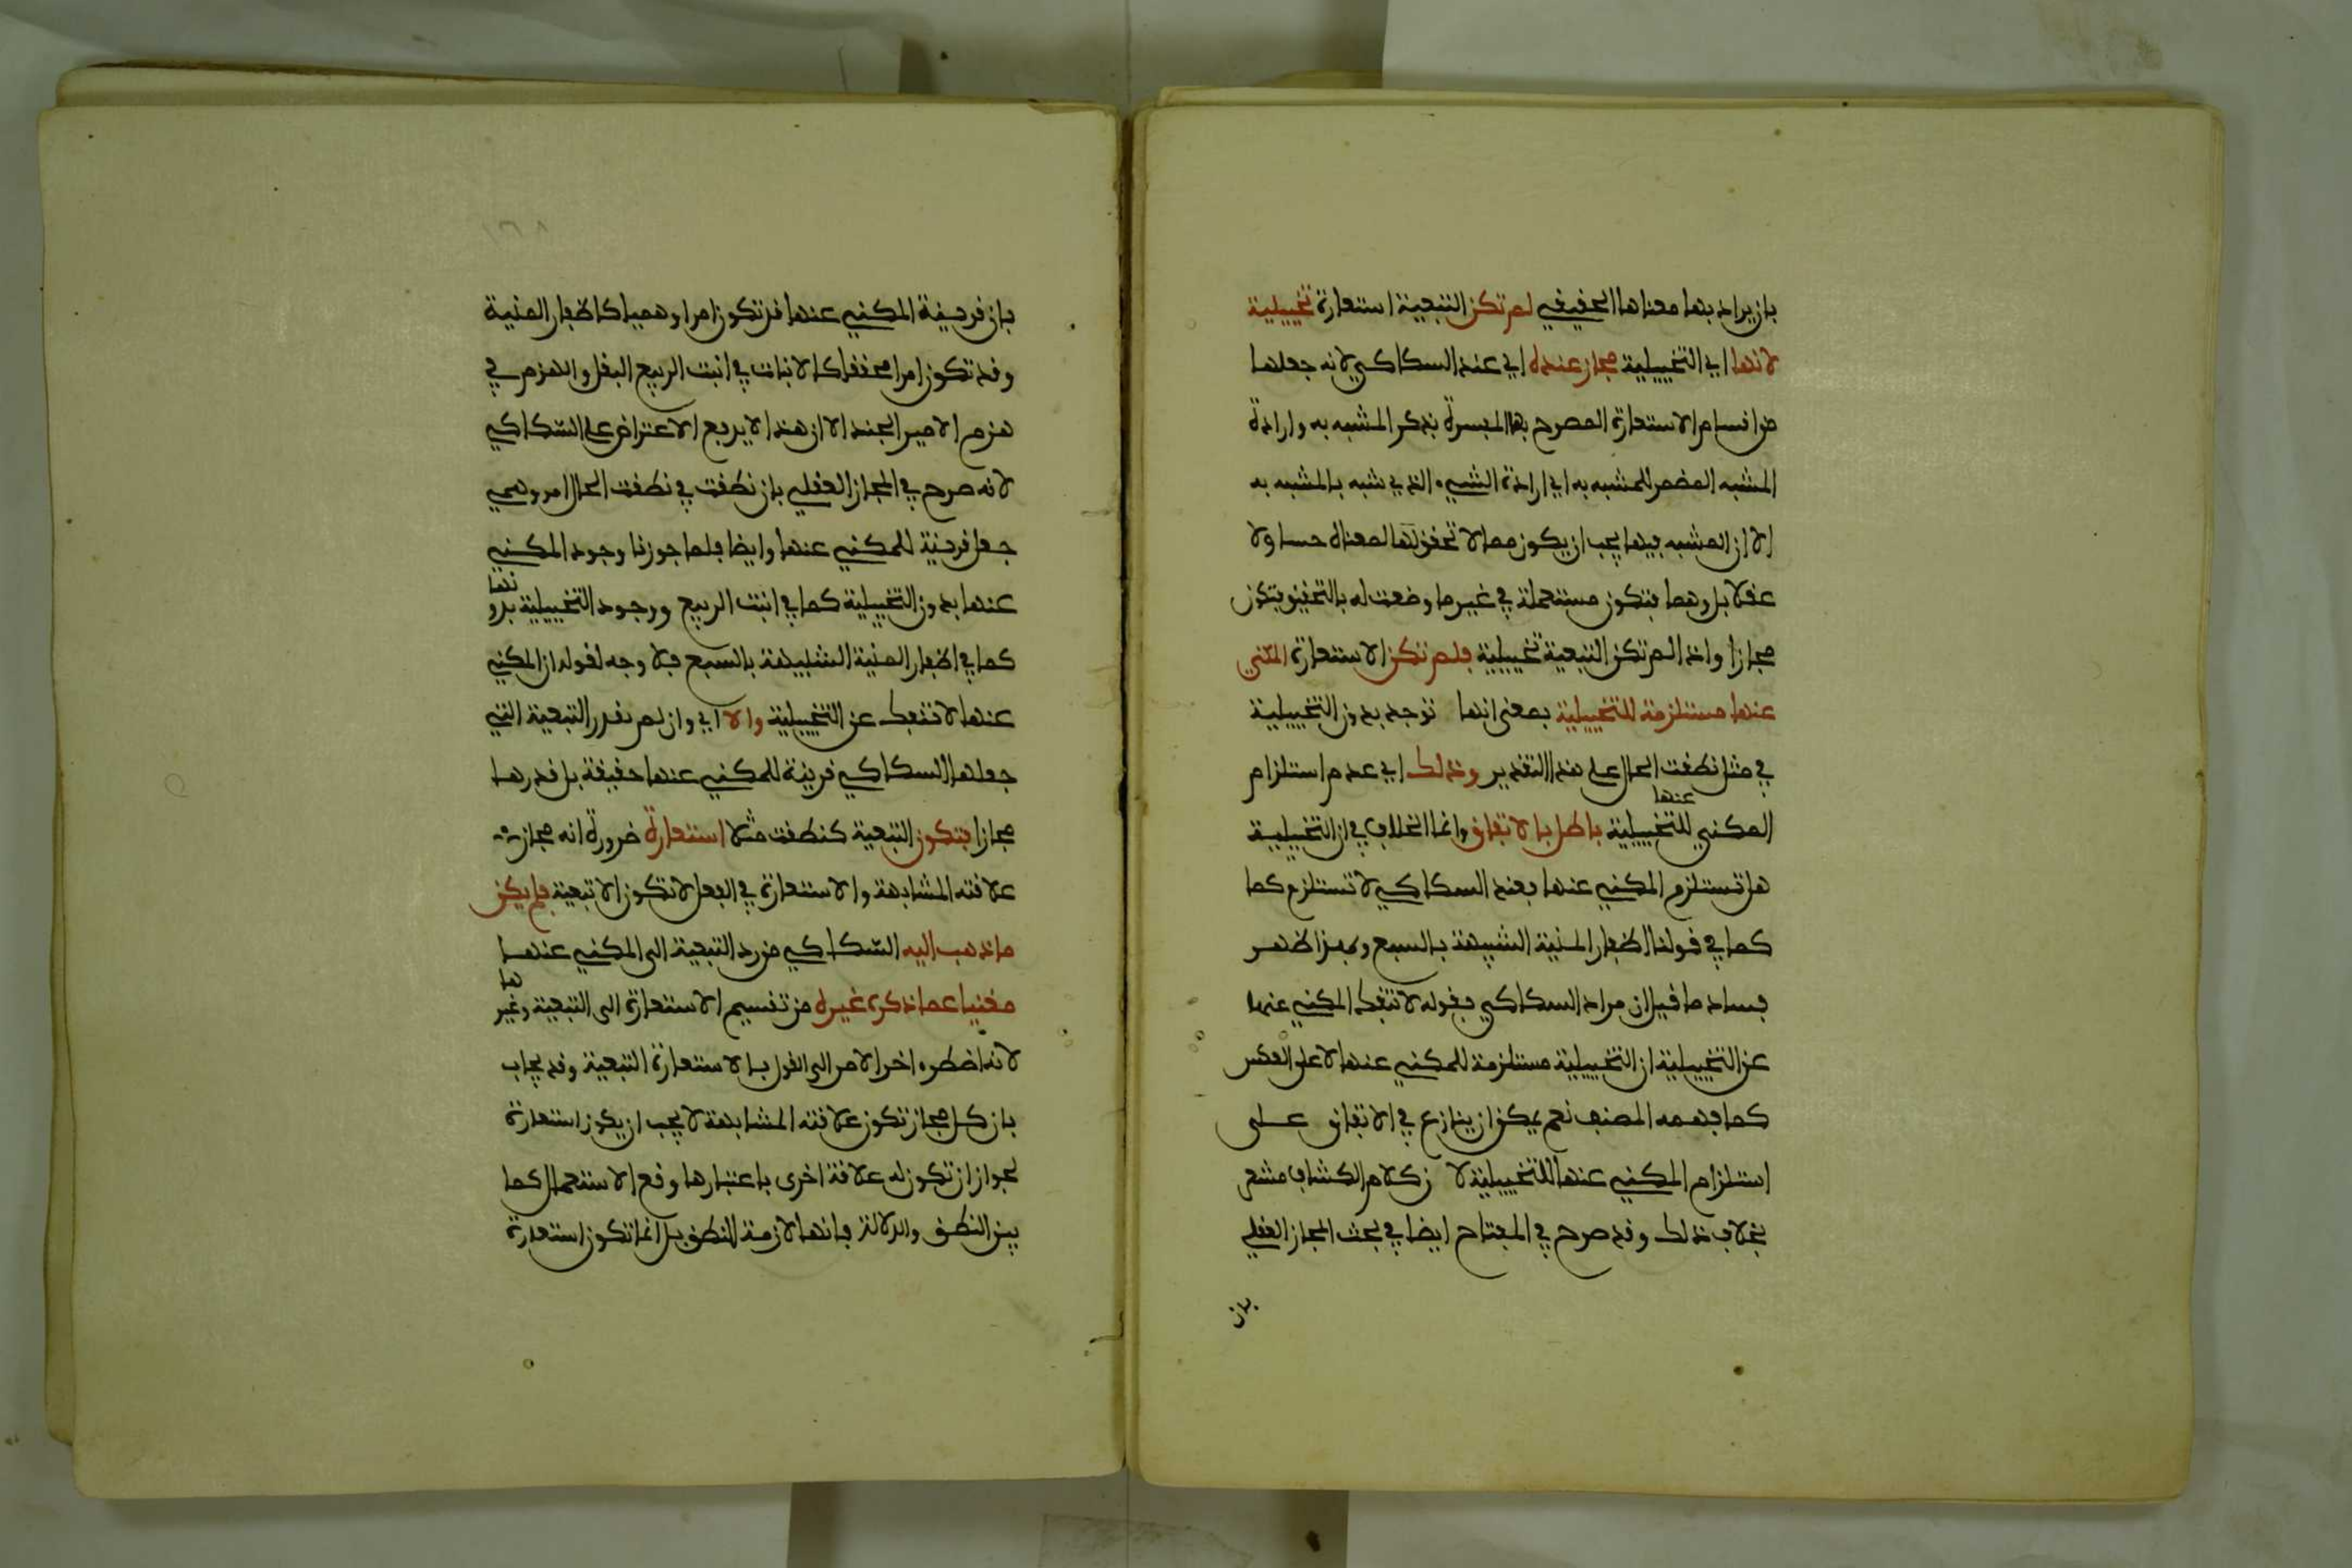 بان يراد بها معناها الحقيقي لم تكن التبعية استعارة تخييلية
لانها اي التخييلية مجاز عنده اي عند السكاكي لانه جعلها
من اقسام الاستعارة المصرح بها المفسرة بذكر المشبه به وارادة
المشبه المضمر للمشبه به اي ارادة الشيء الذي شبه بالمشبه به
الا ان المشبه فيها يجب ان يكون مما لا تحقق لمعناه حسا ولا
عقلا بل وهما فتكون مستعملة في غير ما وضعت له بالتحقيق فتكون
مجازا واذا لم تكن التبعية تخييلية فلم تكن الاستعارة المكني
عنها مستلزمة للتخييلية بمعنى انها توجد بدون التخييلية
في مثل نطقت الحال على هذا التقدير وذلك اي عدم استلزام
المكني عنها للتخييلية باطل بالاتفاق وانما الخلاف في ان التخييلية
هل تستلزم المكني عنها فعند السكاكي لا تستلزم كما
كما في قولنا اظفار المنية الشبيهة بالسبع وبهذا ظهر
فساد ما قيل ان مراد السكاكي بقوله لا تنفك المكني عنها
عن التخييلية ان التخييلية مستلزمة للمكني عنها لا على العكس
كما فهمه المصنف نعم يمكن ان ينازع في الاتفاق على
استلزام المكني عنها للتخييلية لا ن كلام الكشاف مشعر
بخلاف ذلك وقد صرح في المفتاح ايضا في بحث المجاز العقلي
بان
١٦٨
بان قرينة المكني عنها قد تكون امرا وهميا كاظفار المنية
وقد تكون امرا محققا كالانبات في انبت الربيع البقل والهزم في
هزم الامير الجند الا ان هذا لا يدفع الاعتراض على السكاكي
لانه صرح في المجاز العقلي بان نطقت في نطقت الحال امر وهمي
جعل قرينة للمكني عنها وايضا فلما جوزنا وجود المكني
عنها بدون التخييلية كما في انبت الربيع ووجود التخييلية بدونها
كما في اظفار المنية الشبيهة بالسبع فلا وجه لقوله ان المكني
عنها لا تنفك عن التخييلية والا اي وان لم يقدر التبعية التي
جعلها السكاكي قرينة للمكني عنها حقيقة بل قدرها
مجازا فتكون التبعية كنطقت مثلا استعارة ضرورة انه مجاز
علاقته المشابهة والاستعارة في الفعل لا تكون الا تبعية فلم يكن
ما ذهب اليه السكاكي من رد التبعية الى المكني عنها
مغنيا عما ذكره غيره من تقسيم الاستعارة الى التبعية وغيرها
لانه اضطر اخر الامر الى القول بالاستعارة التبعية وقد يجاب
بان كل مجاز تكون علاقته المشابهة لا يجب ان يكون استعارة
لجواز ان تكون له علاقة اخرى باعتبارها وقع الاستعمال كما
بين النطق والدلالة فانها لازمة للنطق بل انما تكون استعارة